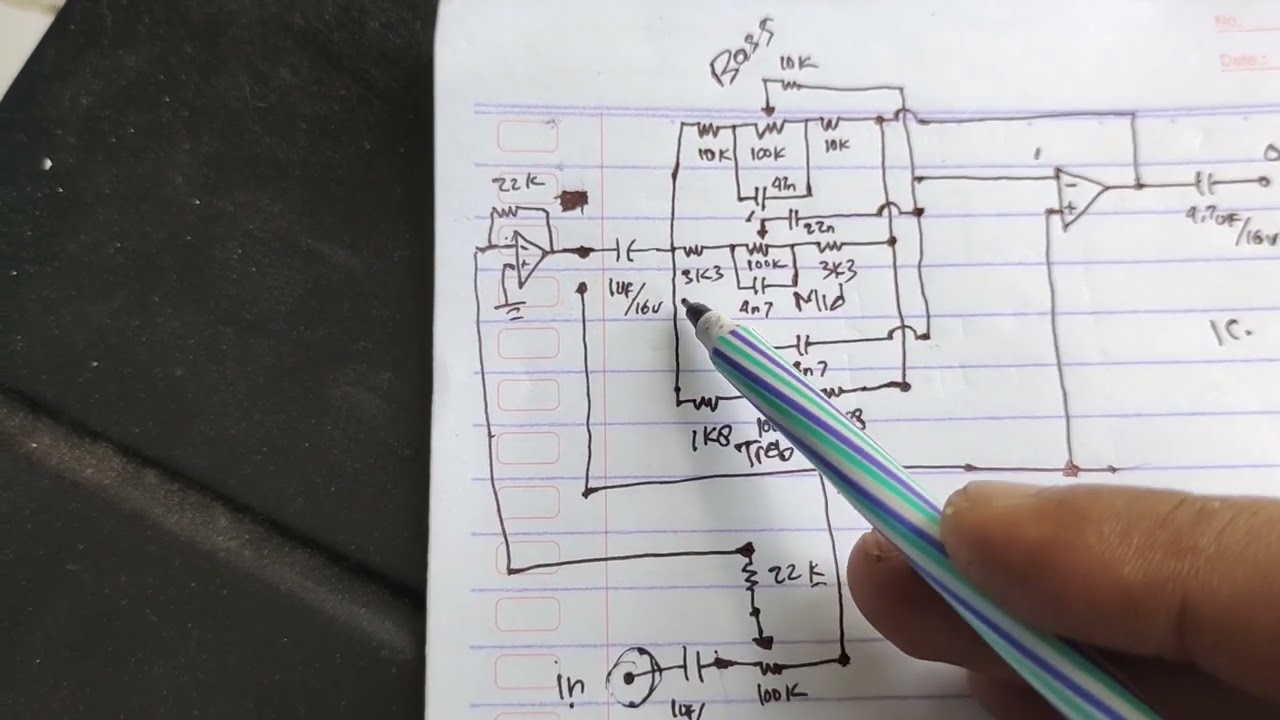 No.
Date:
Bass
10K
10K
100K
10K
47n
22K
22n
3K3
100K
3K3
4n7
Mid
1uF/16V
4.7uF/16V
IC.
1K8
Treb
22K
in
1uF/
100K